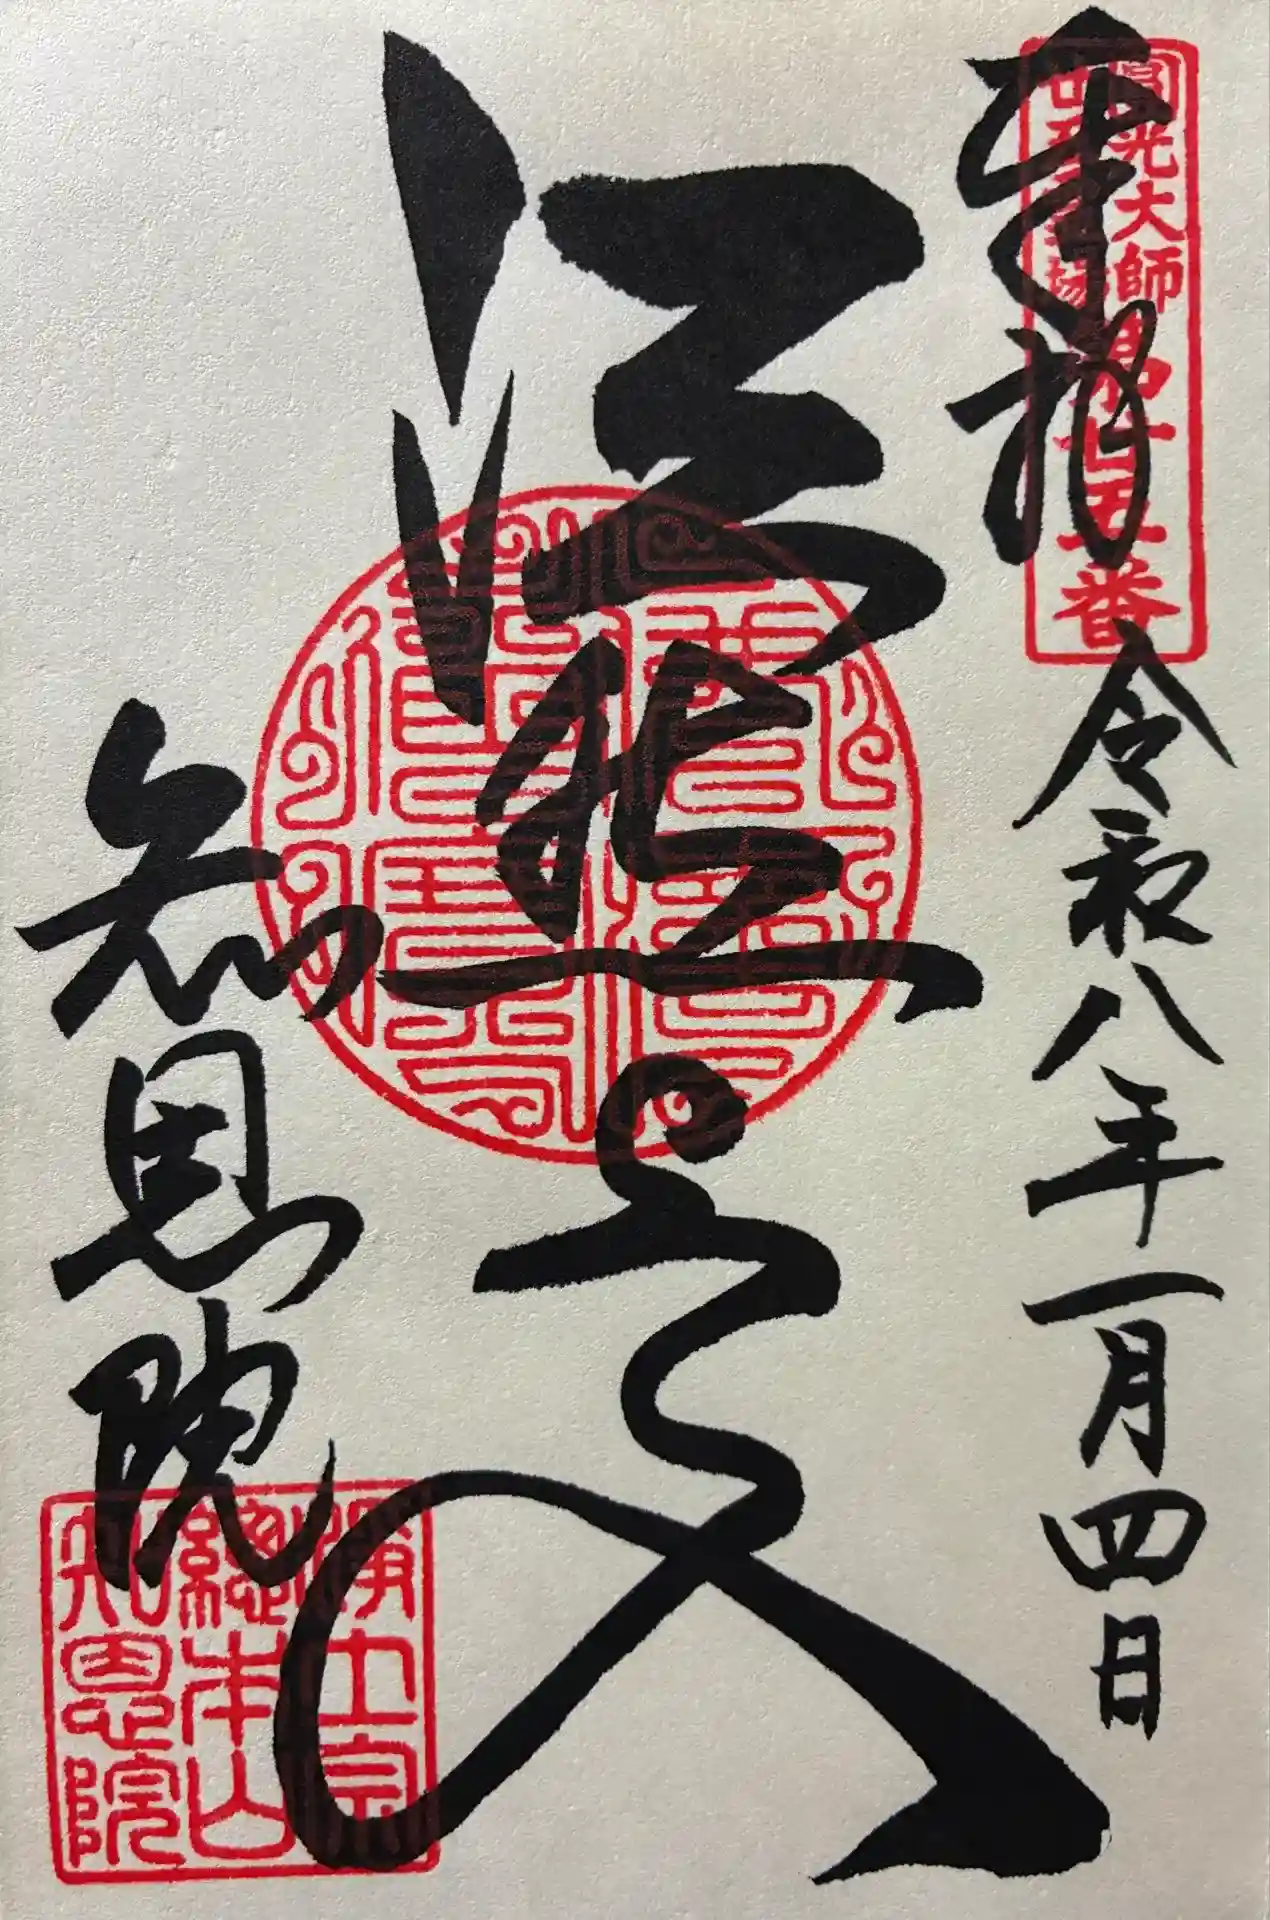 奉拝
圓光大師
第廿五番
令和八年一月四日
法然上人
知恩院
淨土宗
總本山
知恩院